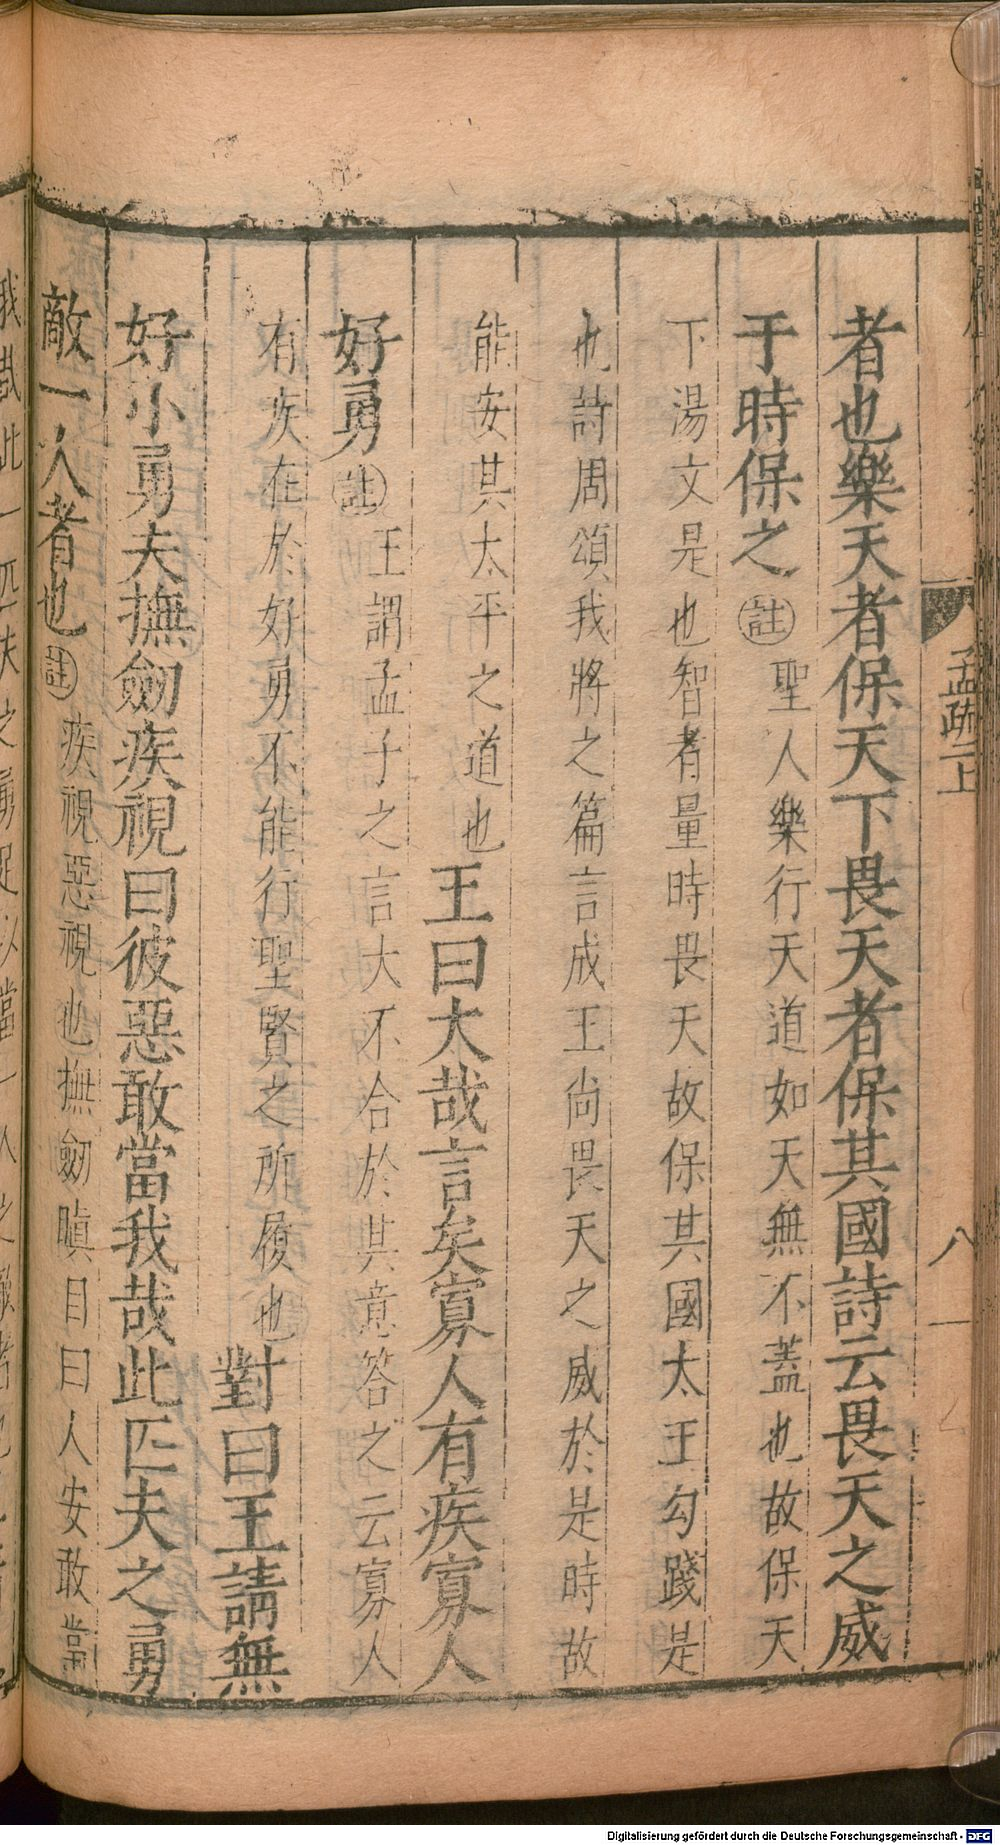 孟疏二上
八
者也樂天者保天下畏天者保其國詩云畏天之威
于時保之註聖人樂行天道如天無不蓋也故保天
下湯文是也智者量時畏天故保其國太王勾踐是
也詩周頌我將之篇言成王尚畏天之威於是時故
能安其太平之道也王曰大哉言矣寡人有疾寡人
好勇註王謂孟子之言大不合於其意答之云寡人
有疾在於好勇不能行聖賢之所履也對曰王請無
好小勇夫撫劒疾視曰彼惡敢當我哉此匹夫之勇
敵一人者也註疾視惡視也撫劒瞋目曰人安敢當
我哉此一匹夫之勇足以當一人之敵者也
Digitalisierung gefördert durch die Deutsche Forschungsgemeinschaft - DFG